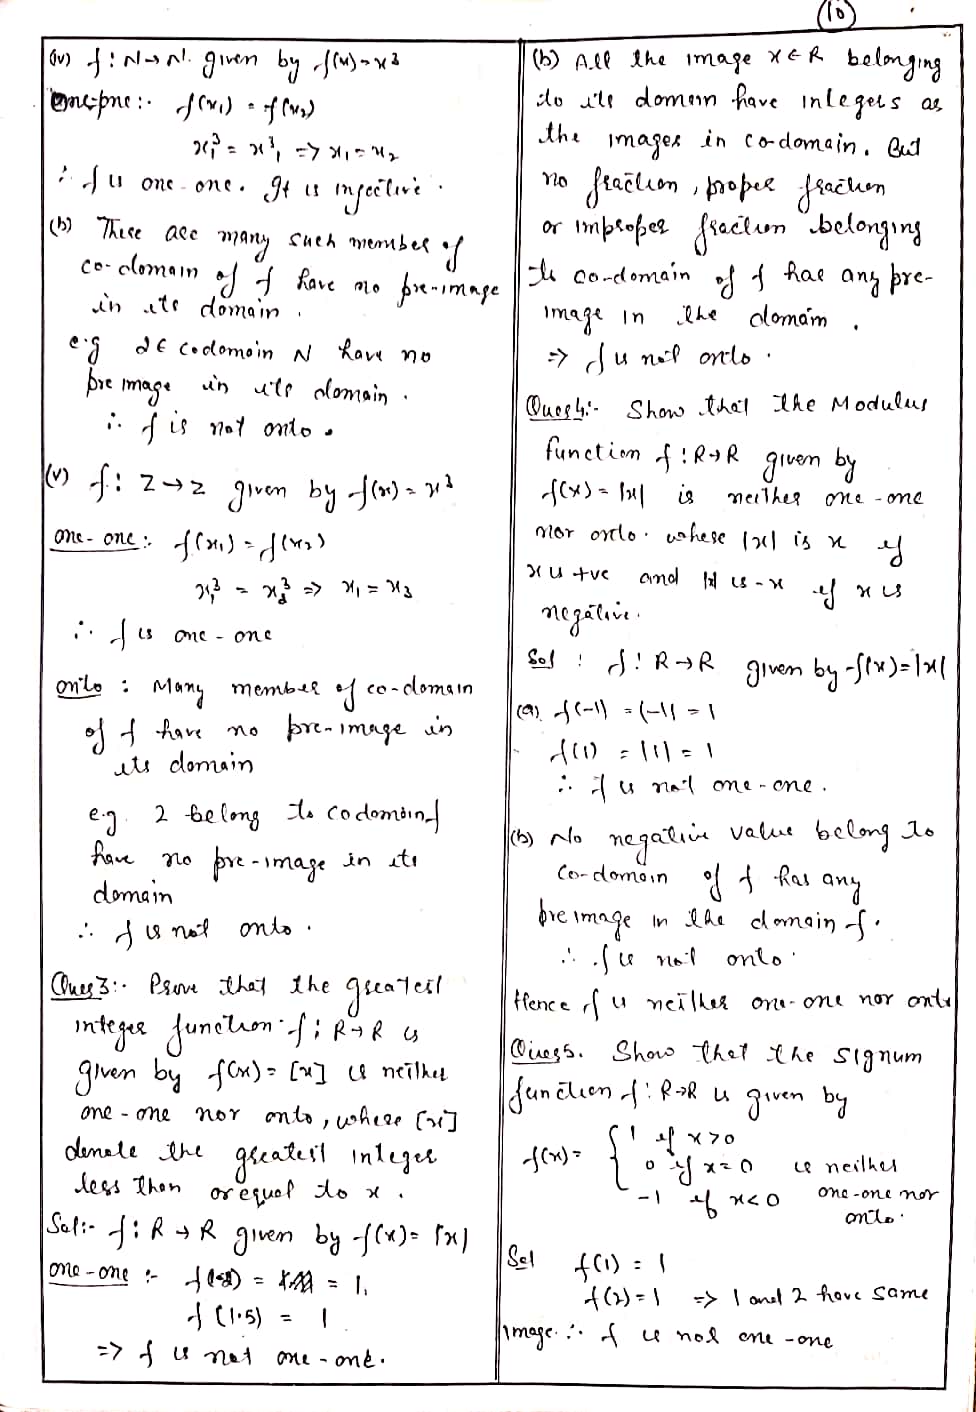 10
(iv) f: N→N. given by f(x)=x³
one-one:- f(x₁) = f(x₂)
x₁³ = x³, => x₁ = x₂
∴ f is one-one. It is injective.
(b) There are many such member of
co-domain of f have no pre-image
in its domain.
e.g 2∈ codomain N have no
pre image in its domain.
∴ f is not onto.
(v) f: Z→Z given by f(x) = x³
one-one:- f(x₁) = f(x₂)
x₁³ = x₂³ => x₁ = x₂
∴ f is one-one
onto : Many member of co-domain
of f have no pre-image in
its domain
e.g. 2 belong to codomain f
have no pre-image in its
domain
∴ f is not onto.
Ques3:- Prove that the greatest
integer function f: R→R is
given by f(x) = [x] is neither
one-one nor onto, where [x]
denote the greatest integer
less than or equal to x.
Sol:- f: R→R given by f(x)= [x]
one-one :- = 1,
f(1.5) = 1
=> f is not one-one.
(b) All the image x∈R belonging
to its domain have integers as
the images in co-domain. But
no fraction, proper fraction
or improper fraction belonging
to co-domain of f has any pre-
image in the domain.
=> f is not onto.
Ques4:- Show that the Modulus
function f: R→R given by
f(x) = |x| is neither one-one
nor onto. where |x| is x if
x is +ve and |x| is -x if x is
negative.
Sol : f: R→R given by f(x)=|x|
(a) f(-1) = |-1| = 1
f(1) = |1| = 1
∴ f is not one-one.
(b) No negative value belong to
co-domain of f has any
preimage in the domain f.
∴ f is not onto.
Hence f is neither one-one nor onto
Ques5. Show that the signum
function f: R→R is given by
f(x)= { 1 if x>0
0 if x=0 is neither
-1 if x<0 one-one nor
onto.
Sol f(1) = 1
f(2) = 1 => 1 and 2 have same
image. ∴ f is not one-one